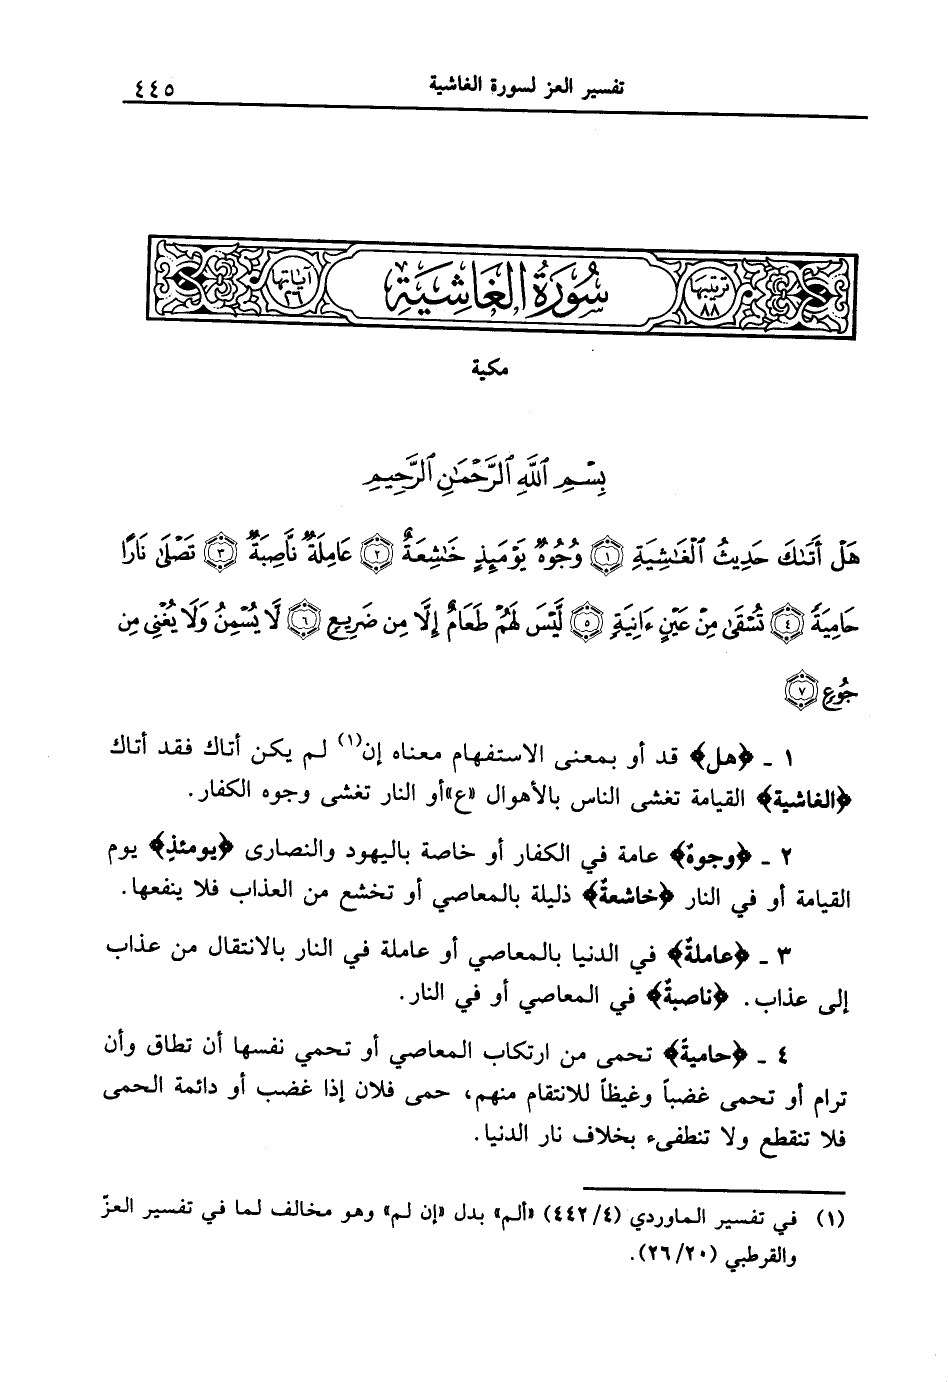 تفسير العز لسورة الغاشية ٤٤٥
ترتيبها ٨٨ سُورَةُ الْغَاشِيَةِ آياتها ٢٦
مكية
بِسْمِ ٱللَّهِ ٱلرَّحْمَٰنِ ٱلرَّحِيمِ
هَلْ أَتَىٰكَ حَدِيثُ ٱلْغَٰشِيَةِ ١ وُجُوهٌ يَوْمَئِذٍ خَٰشِعَةٌ ٢ عَامِلَةٌ نَّاصِبَةٌ ٣ تَصْلَىٰ نَارًا
حَامِيَةً ٤ تُسْقَىٰ مِنْ عَيْنٍ ءَانِيَةٍ ٥ لَّيْسَ لَهُمْ طَعَامٌ إِلَّا مِن ضَرِيعٍ ٦ لَّا يُسْمِنُ وَلَا يُغْنِى مِن
جُوعٍ ٧
١ ـ ﴿هل﴾ قد أو بمعنى الاستفهام معناه إن(١) لم يكن أتاك فقد أتاك
﴿الغاشية﴾ القيامة تغشى الناس بالأهوال «ع»أو النار تغشى وجوه الكفار.
٢ ـ ﴿وجوهٌ﴾ عامة في الكفار أو خاصة باليهود والنصارى ﴿يومئذٍ﴾ يوم
القيامة أو في النار ﴿خاشعةٌ﴾ ذليلة بالمعاصي أو تخشع من العذاب فلا ينفعها.
٣ ـ ﴿عاملةٌ﴾ في الدنيا بالمعاصي أو عاملة في النار بالانتقال من عذاب
إلى عذاب. ﴿ناصبةٌ﴾ في المعاصي أو في النار.
٤ ـ ﴿حاميةً﴾ تحمى من ارتكاب المعاصي أو تحمي نفسها أن تطاق وأن
ترام أو تحمى غضباً وغيظاً للانتقام منهم، حمى فلان إذا غضب أو دائمة الحمى
فلا تنقطع ولا تنطفىء بخلاف نار الدنيا.
(١) في تفسير الماوردي (٤/ ٤٤٢) «ألم» بدل «إن لم» وهو مخالف لما في تفسير العزّ
والقرطبي (٢٦/٢٠).